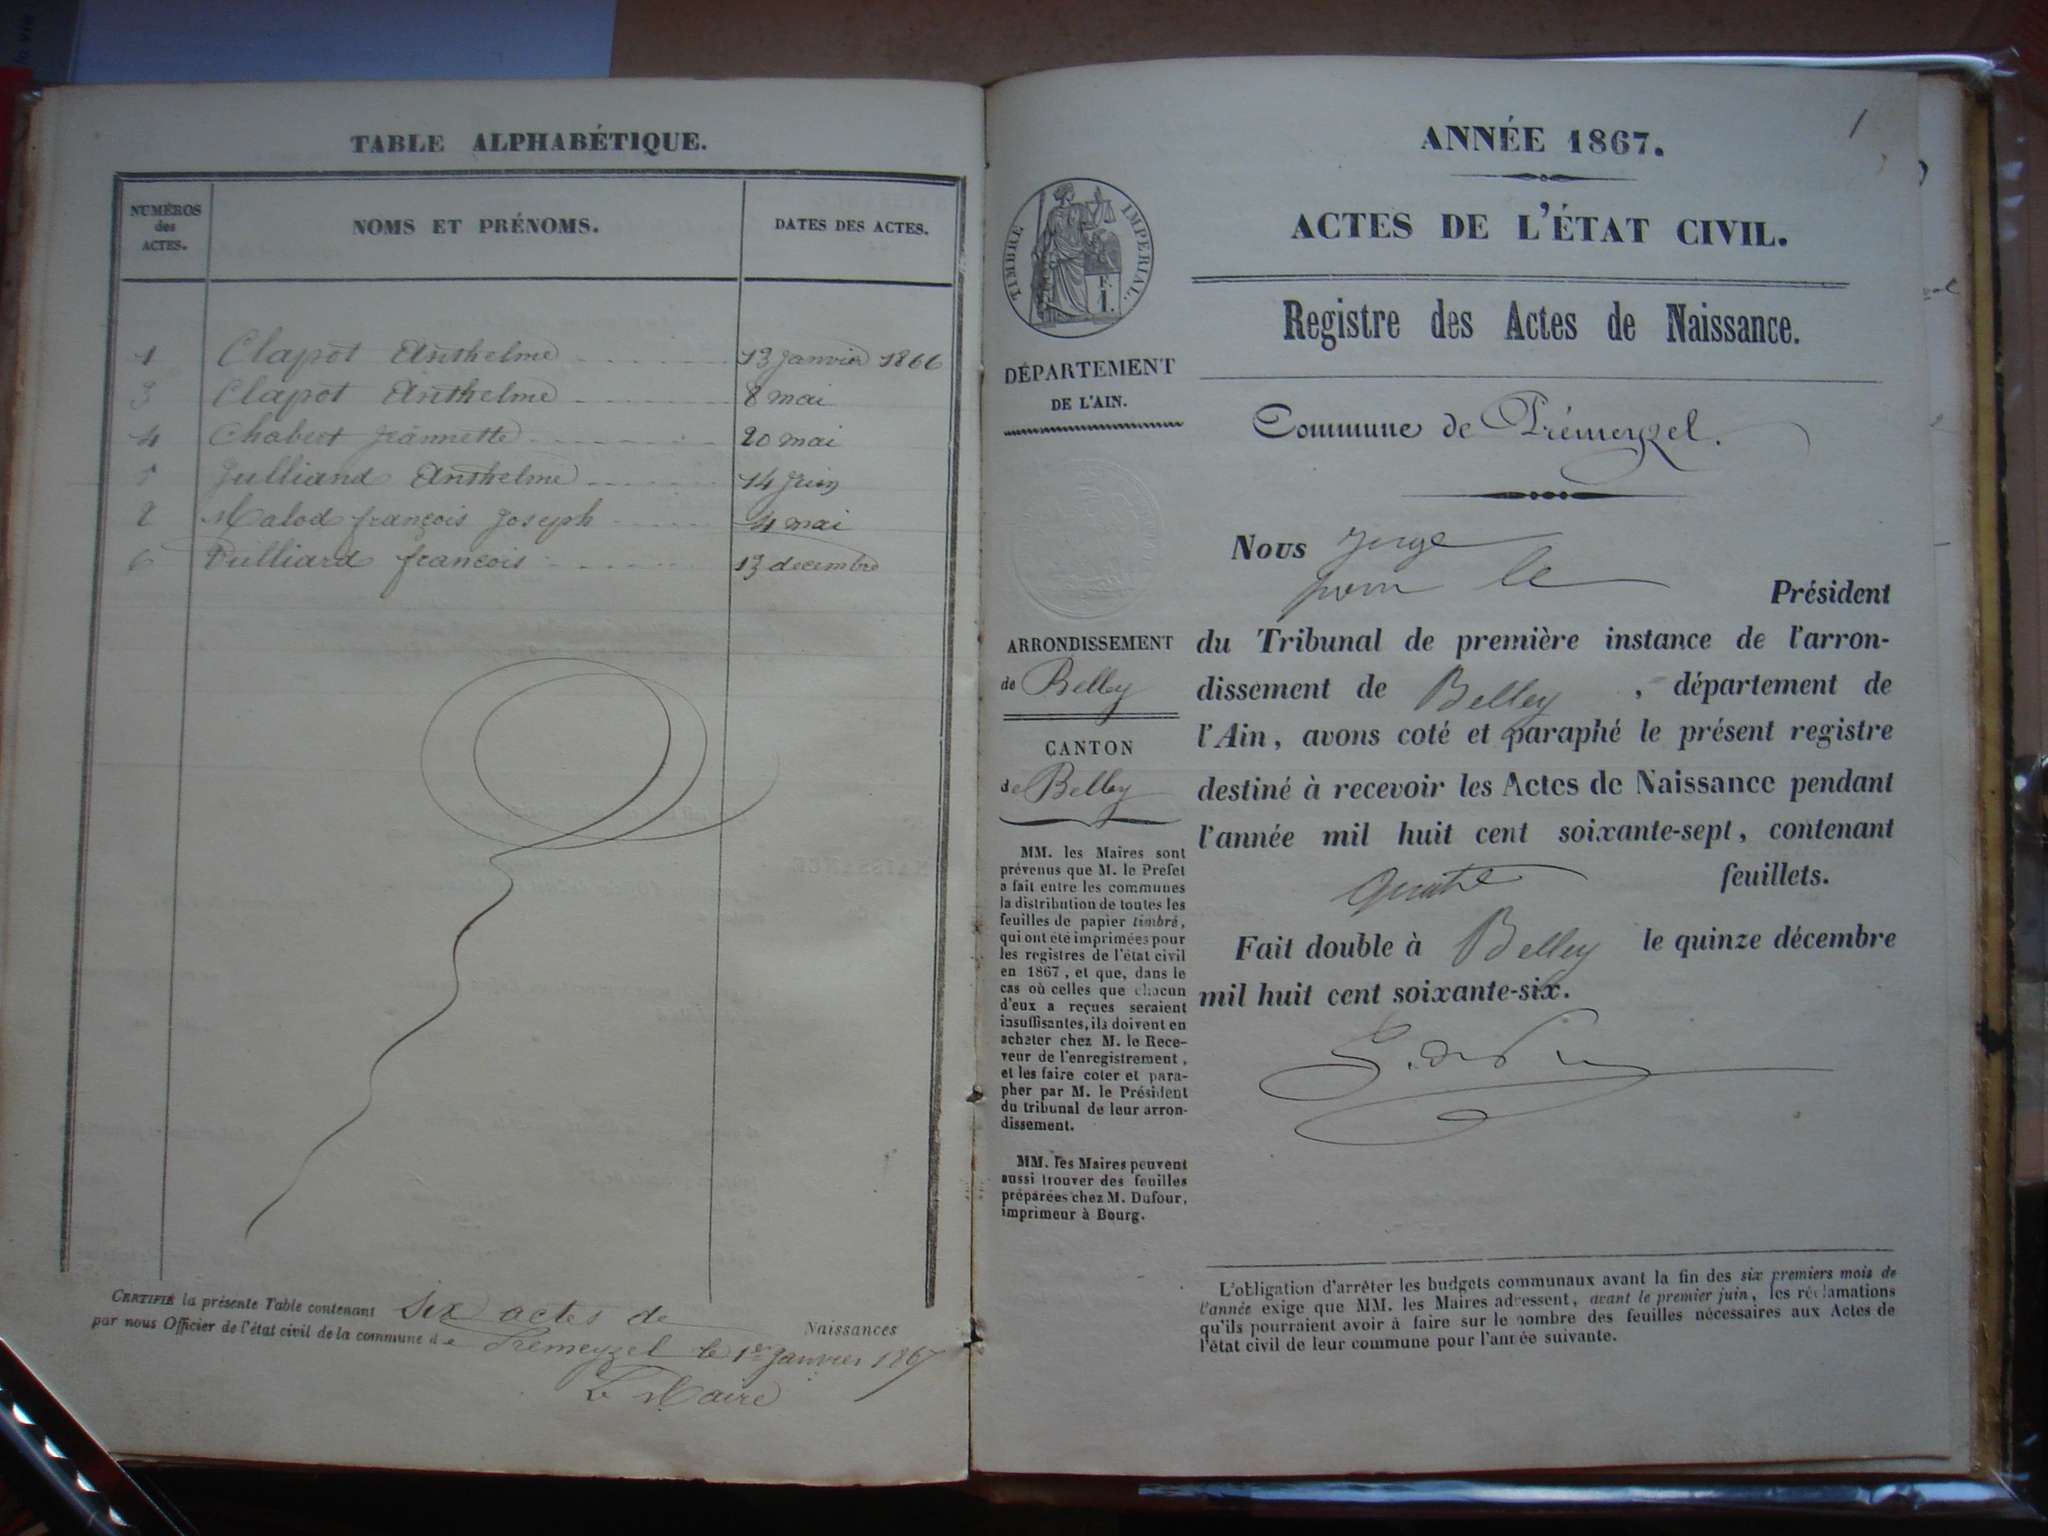 TABLE ALPHABÉTIQUE.
NUMÉROS des ACTES.
NOMS ET PRÉNOMS.
DATES DES ACTES.
1 Clapot Anthelme 13 janvier 1866
3 Clapot Anthelme 8 mai
4 Chabert Jeannette 20 mai
5 Julliand Anthelme 14 Juin
2 Malod françois Joseph 4 mai
6 françois 13 decembre
CERTIFIÉ la présente Table contenant six actes de Naissances
par nous Officier de l'état civil de la commune de Prémeyzel le 1er Janvier 1867
Le Maire
1
ANNÉE 1867.
ACTES DE L'ÉTAT CIVIL.
TIMBRE IMPÉRIAL.
F.
1.
Registre des Actes de Naissance.
DÉPARTEMENT
DE L'AIN.
Commune de Prémeyzel.
Nous juge
pour le Président
du Tribunal de première instance de l'arron-
dissement de Belley, département de
l'Ain, avons coté et paraphé le présent registre
destiné à recevoir les Actes de Naissance pendant
l'année mil huit cent soixante-sept, contenant
quatre feuillets.
Fait double à Belley le quinze décembre
mil huit cent soixante-six.
ARRONDISSEMENT
de Belley
CANTON
de Belley
MM. les Maires sont
prévenus que M. le Prefet
a fait entre les communes
la distribution de toutes les
feuilles de papier timbré,
qui ont été imprimées pour
les registres de l'état civil
en 1867, et que, dans le
cas où celles que chacun
d'eux a reçues seraient
insuffisantes, ils doivent en
acheter chez M. le Rece-
veur de l'enregistrement,
et les faire coter et para-
pher par M. le Président
du tribunal de leur arron-
dissement.
MM. les Maires peuvent
aussi trouver des feuilles
préparées chez M. Dufour,
imprimeur à Bourg.
L'obligation d'arrêter les budgets communaux avant la fin des six premiers mois de
l'année exige que MM. les Maires adressent, avant le premier juin, les réclamations
qu'ils pourraient avoir à faire sur le nombre des feuilles nécessaires aux Actes de
l'état civil de leur commune pour l'année suivante.